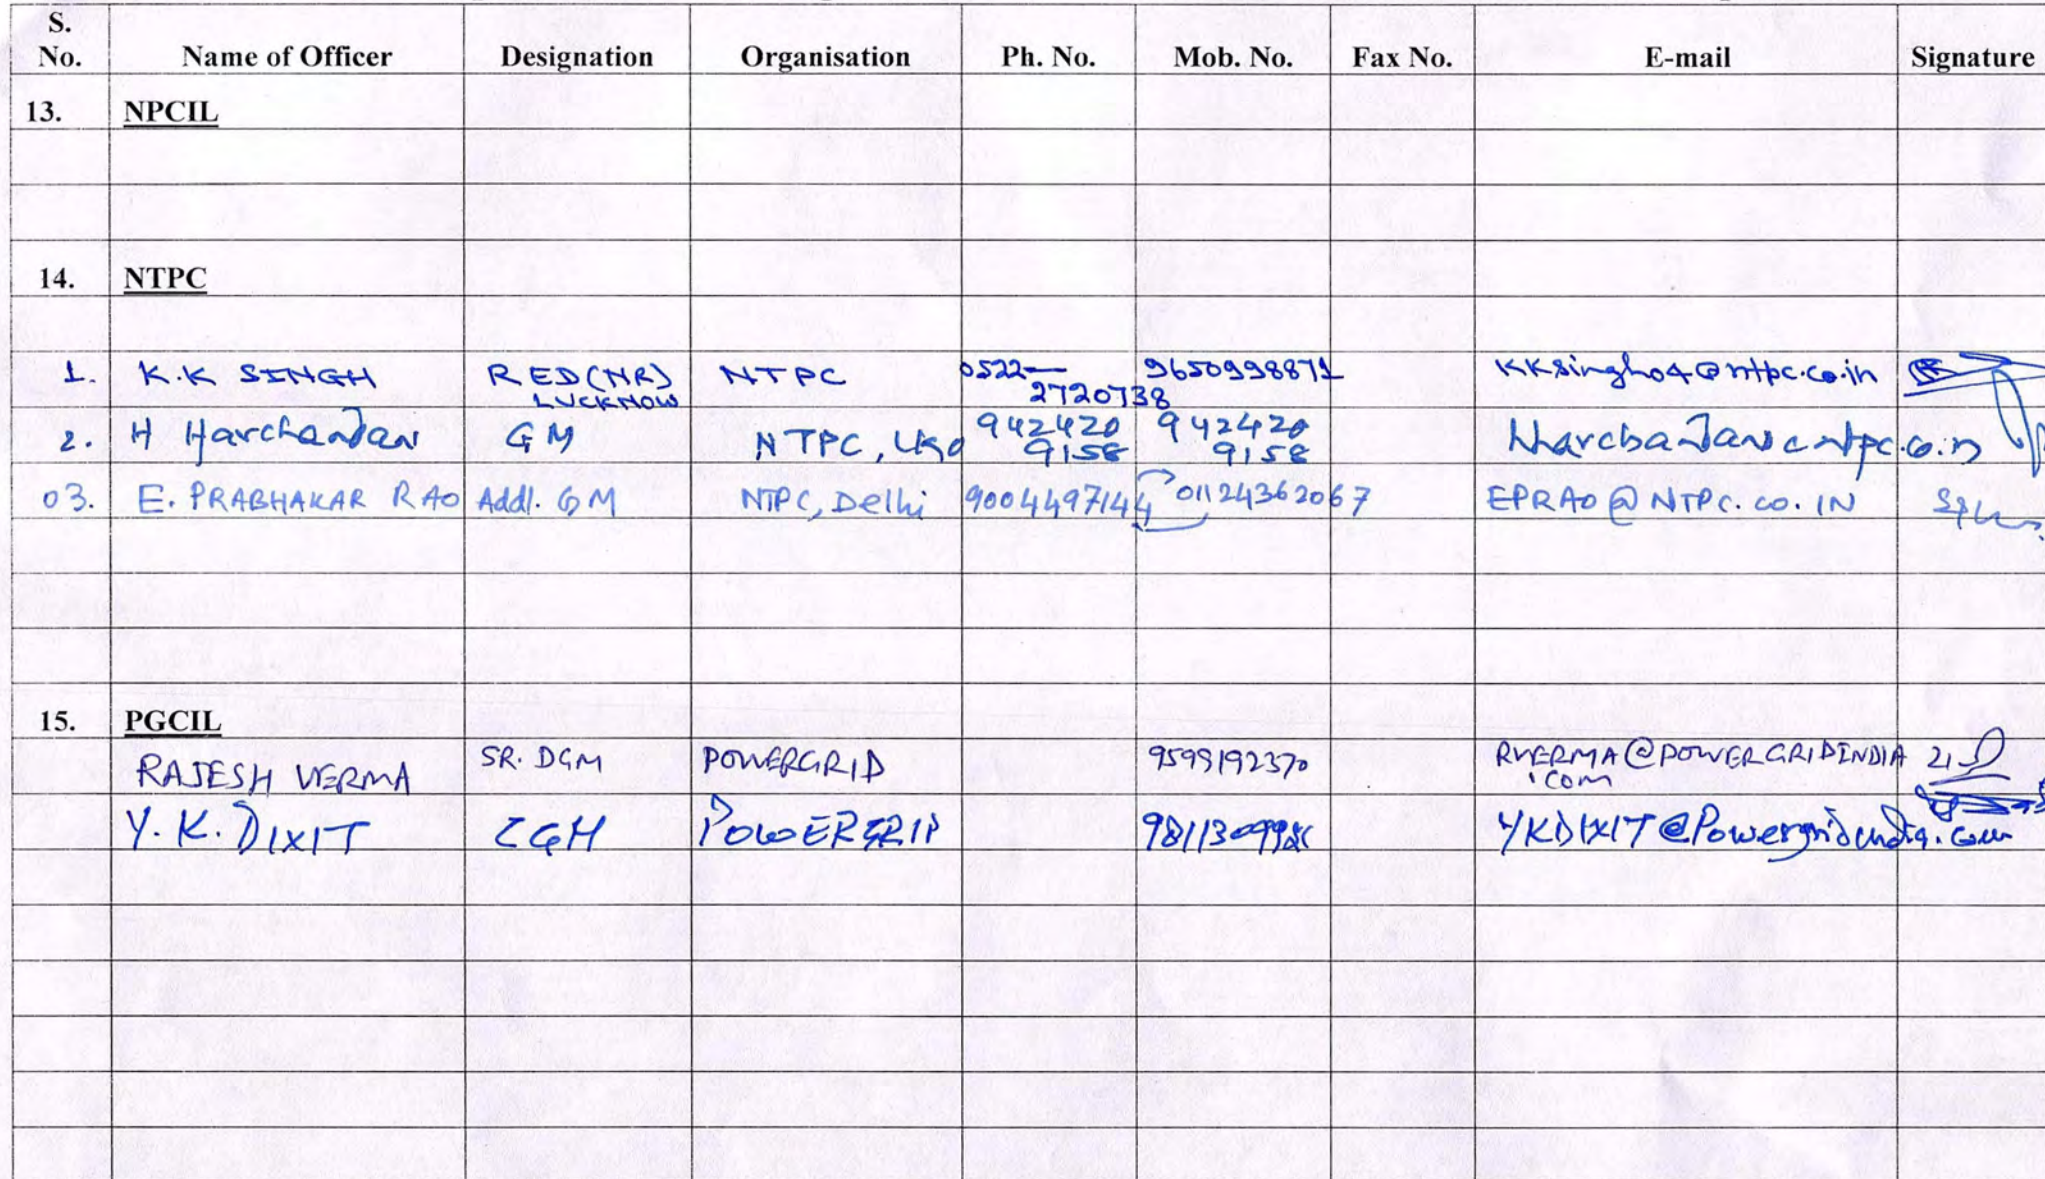 S. No. Name of Officer Designation Organisation Ph. No. Mob. No. Fax No. E-mail Signature
13. NPCIL
14. NTPC
1. K.K SINGH RED(NR) NTPC 0522— 9650998871 KKSingh04@ntpc.co.in
LUCKNOW 2720738
2. H Harchandan GM NTPC, LKO 942420 942420
9158 9158
03. E. PRABHAKAR RAO Addl. GM NTPC, Delhi 9004497144 01124362067 EPRAO@NTPC.CO.IN
15. PGCIL
RAJESH VERMA SR. DGM POWERGRID 9599192370 RVERMA@POWERGRIDINDIA
.com
Y. K. DIXIT CGM POWERGRID YKDIXIT@Powergridindia.com